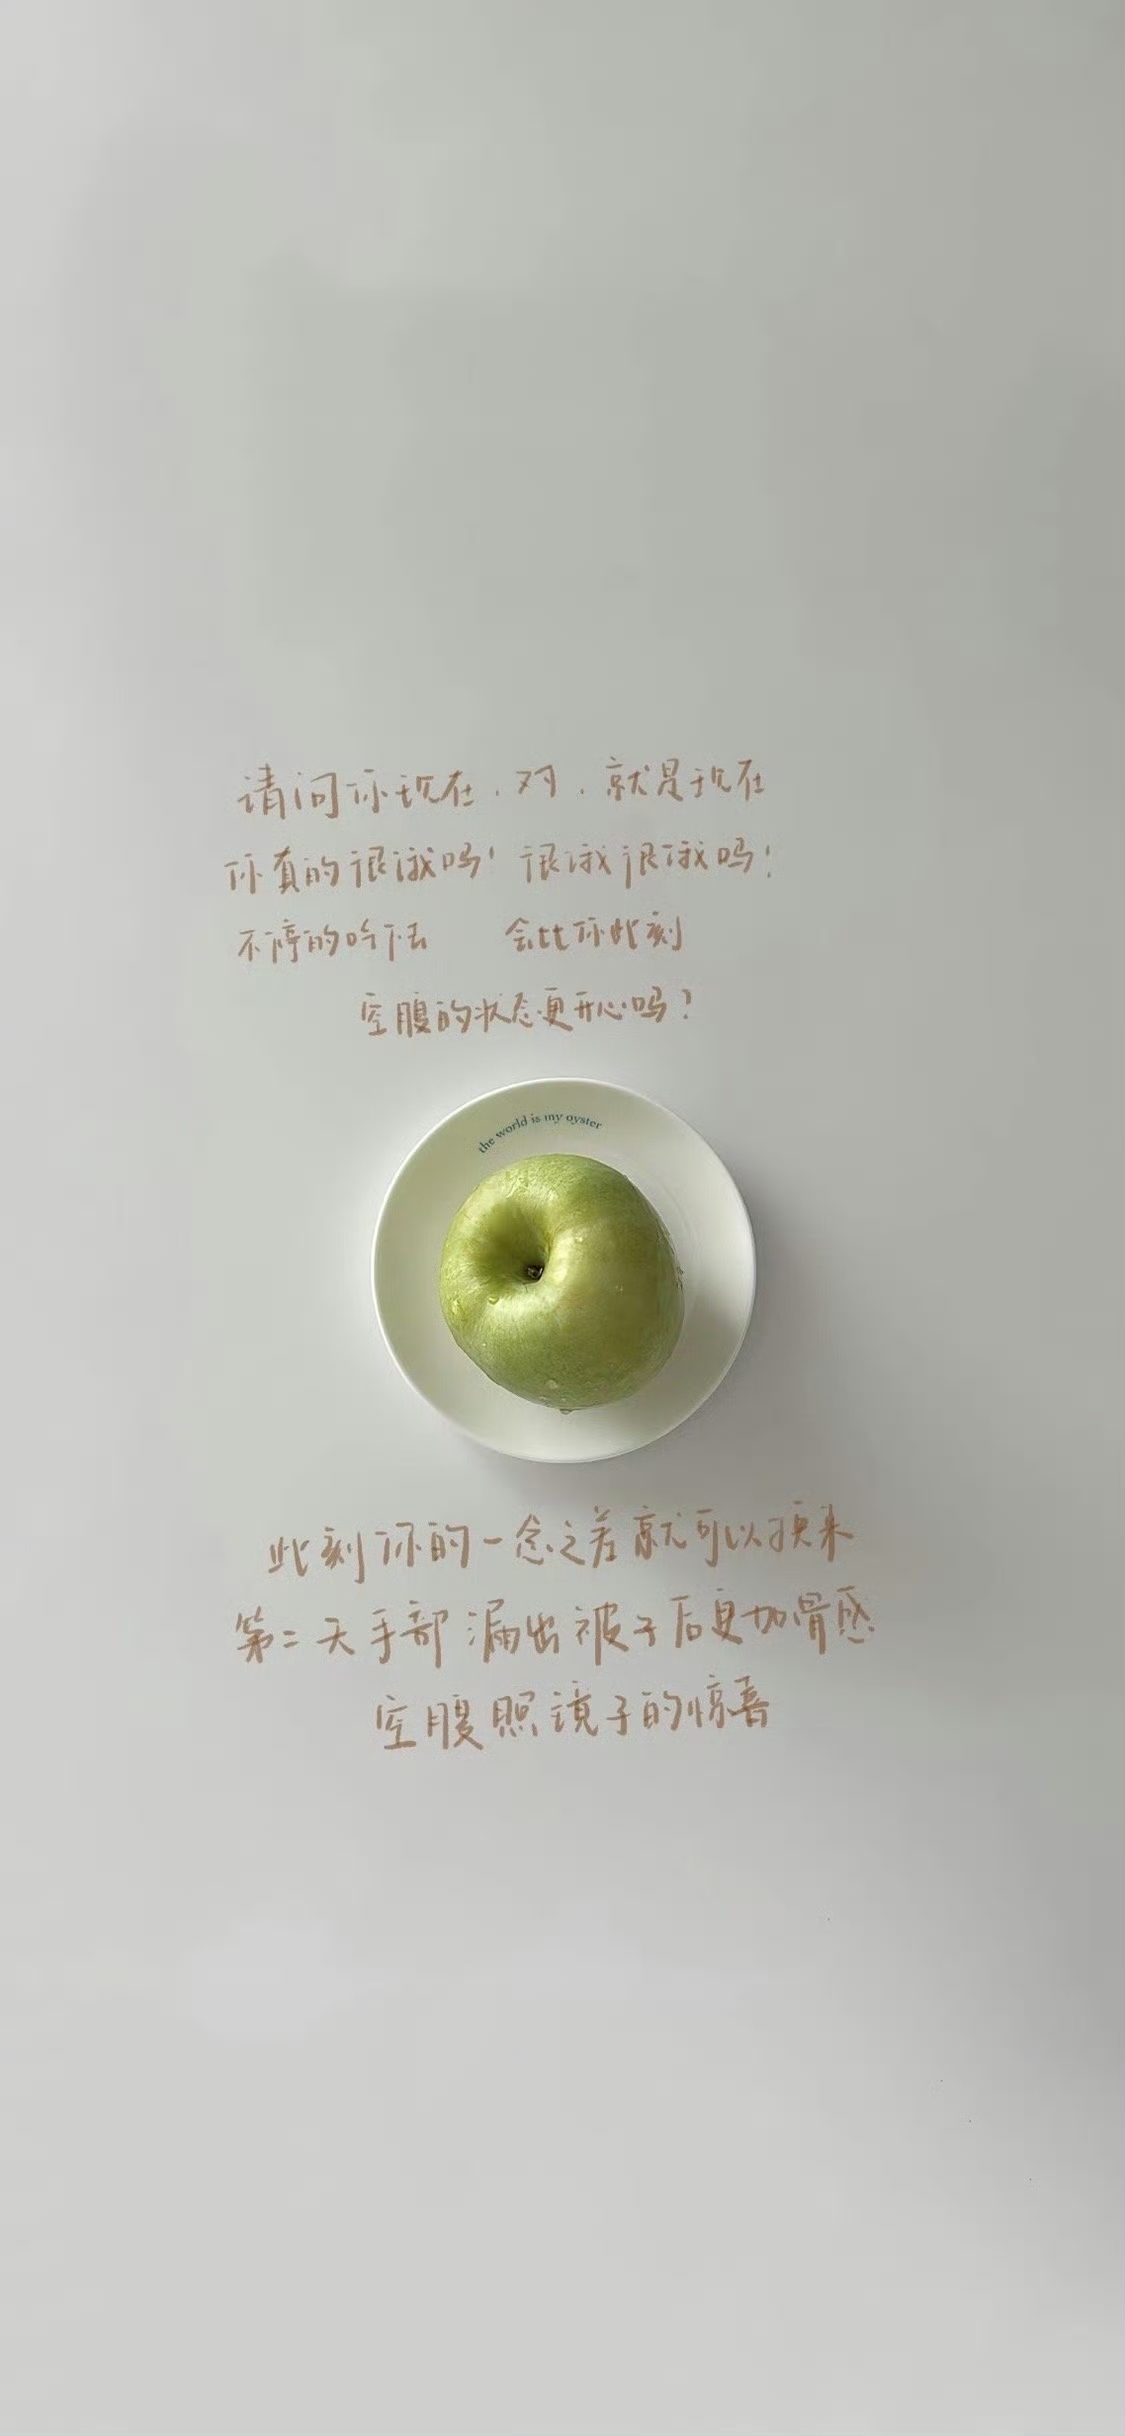 请问你现在，对，就是现在
你真的很饿吗！很饿很饿吗！
不停的吃下去 会比你此刻
空腹的状态更开心吗？
the world is my oyster
此刻你的一念之差就可以换来
第二天手部漏出被子后更加骨感
空腹照镜子的惊喜